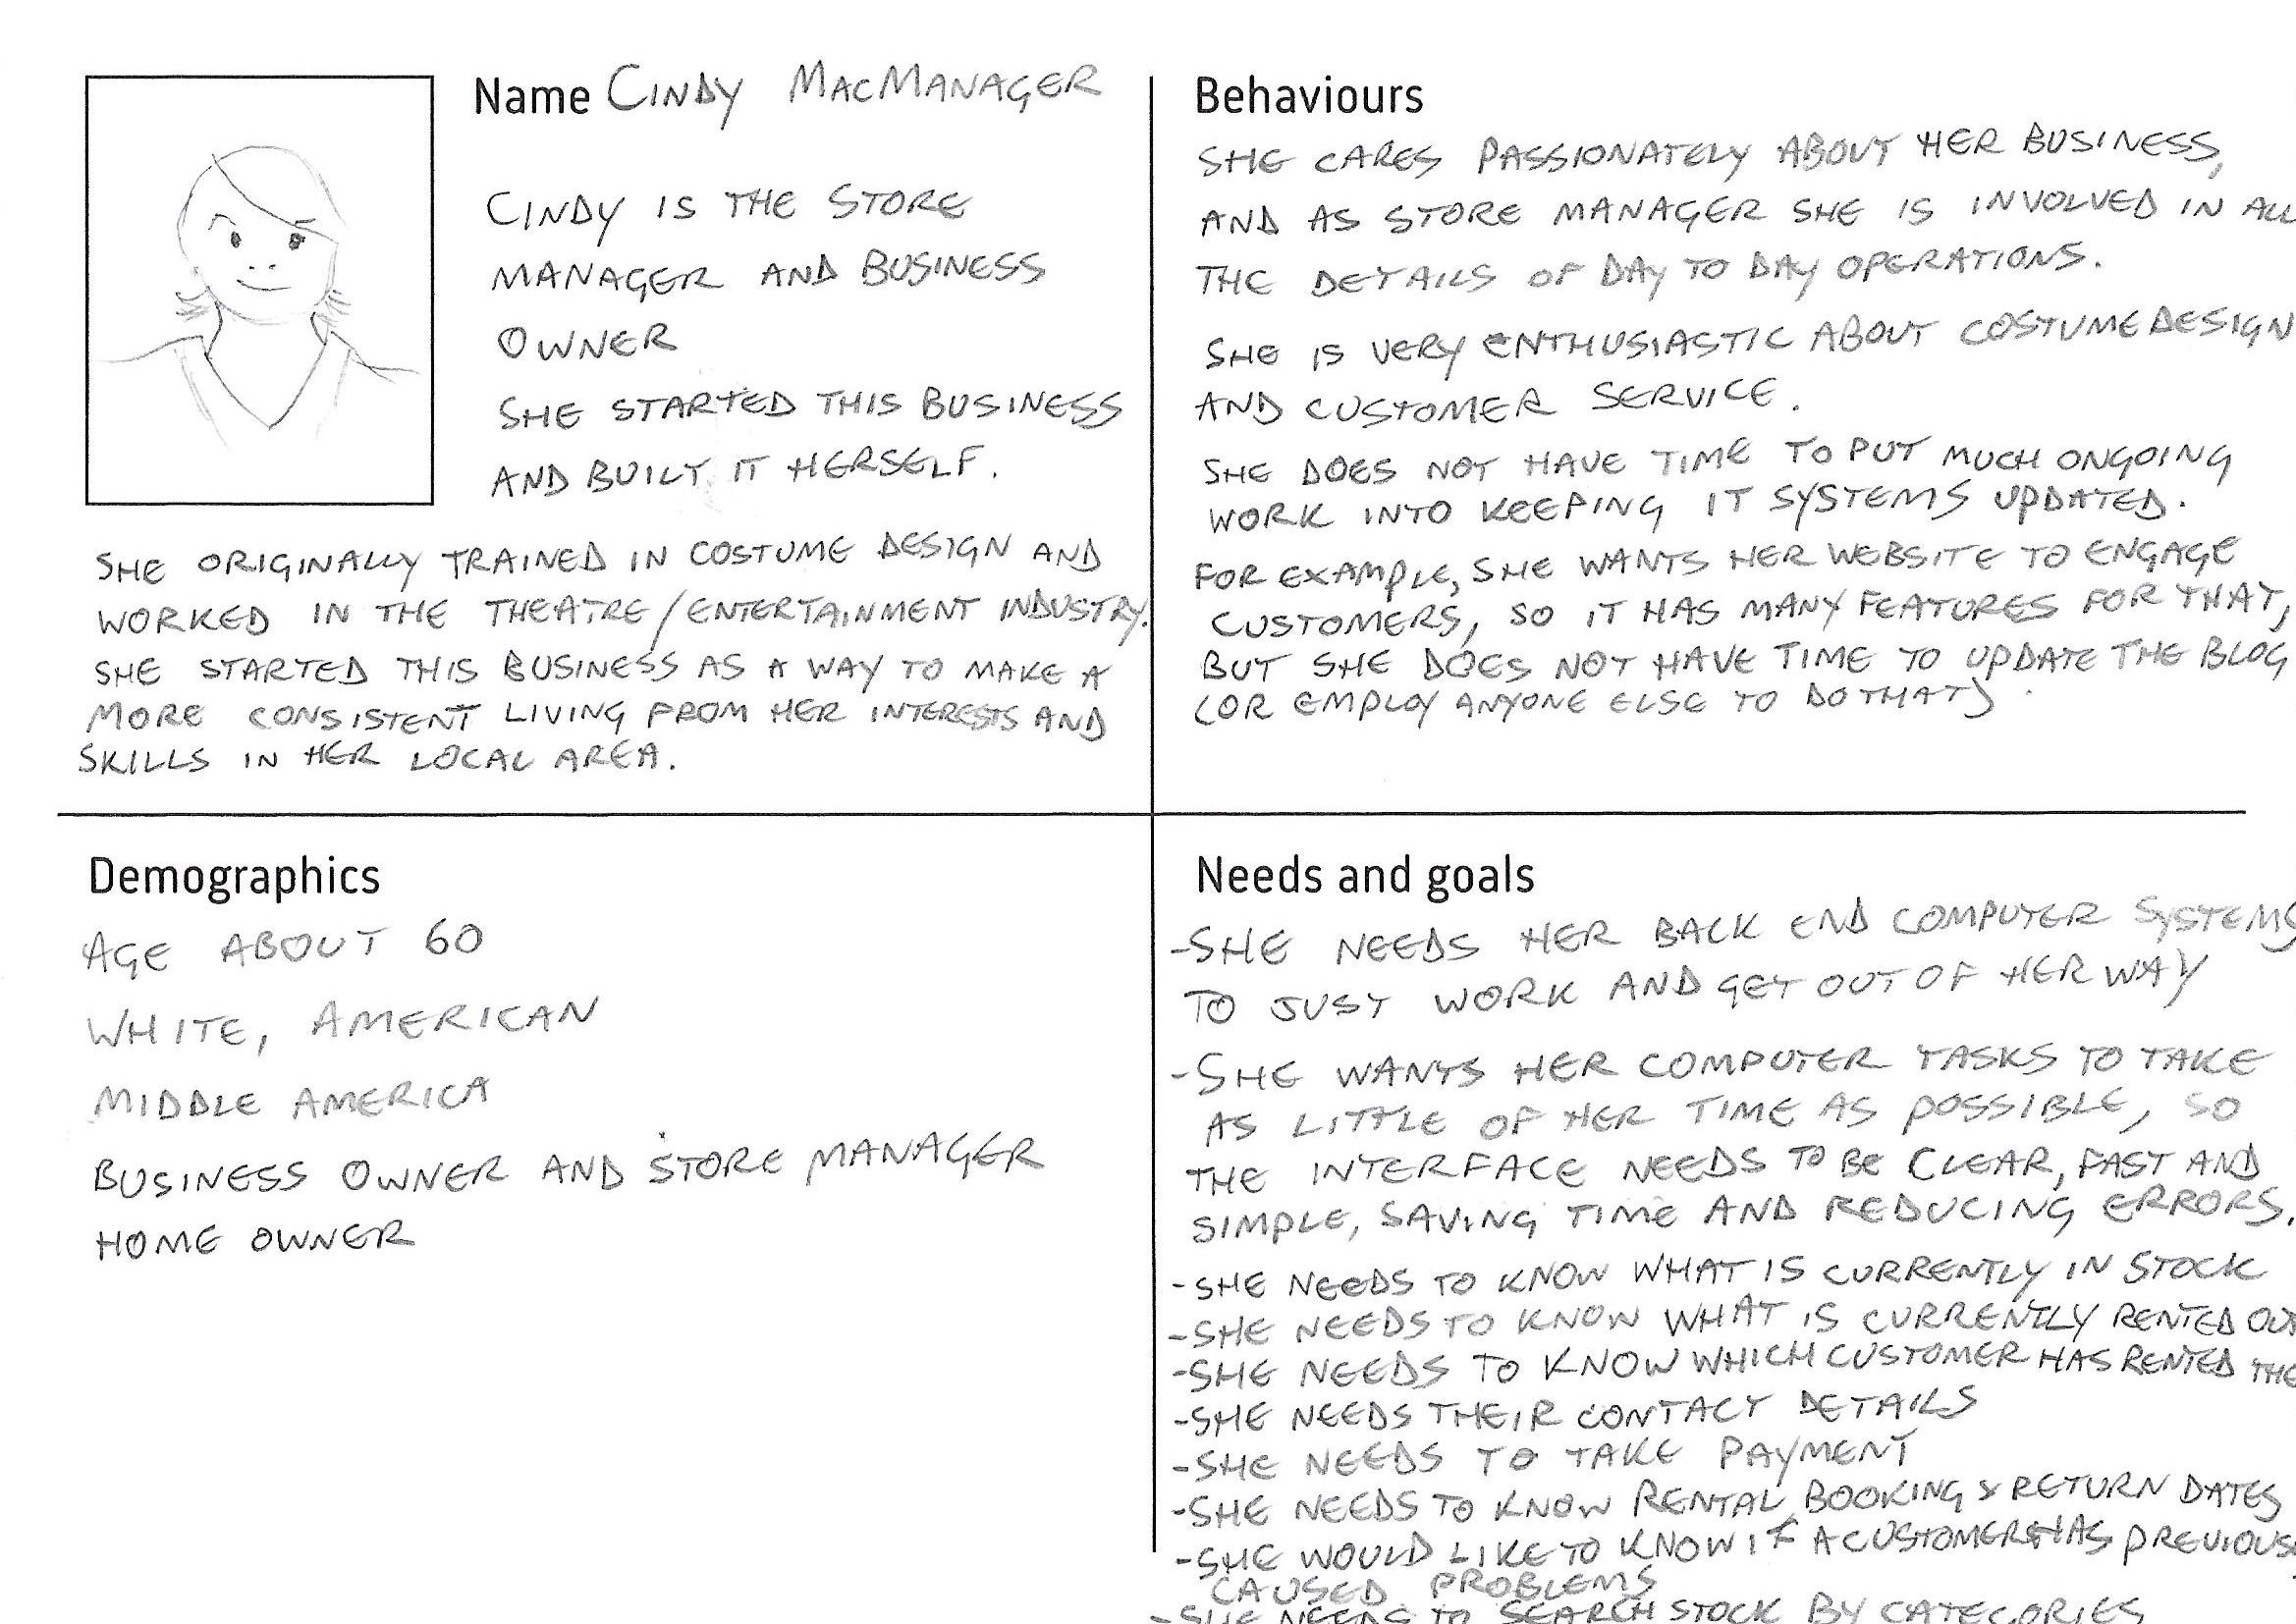 Name CINDY MACMANAGER
CINDY IS THE STORE
MANAGER AND BUSINESS
OWNER
SHE STARTED THIS BUSINESS
AND BUILT IT HERSELF.
SHE ORIGINALLY TRAINED IN COSTUME DESIGN AND
WORKED IN THE THEATRE/ENTERTAINMENT INDUSTRY.
SHE STARTED THIS BUSINESS AS A WAY TO MAKE A
MORE CONSISTENT LIVING FROM HER INTERESTS AND
SKILLS IN HER LOCAL AREA.
Behaviours
SHE CARES PASSIONATELY ABOUT HER BUSINESS,
AND AS STORE MANAGER SHE IS INVOLVED IN ALL
THE DETAILS OF DAY TO DAY OPERATIONS.
SHE IS VERY ENTHUSIASTIC ABOUT COSTUME DESIGN
AND CUSTOMER SERVICE.
SHE DOES NOT HAVE TIME TO PUT MUCH ONGOING
WORK INTO KEEPING IT SYSTEMS UPDATED.
FOR EXAMPLE, SHE WANTS HER WEBSITE TO ENGAGE
CUSTOMERS, SO IT HAS MANY FEATURES FOR THAT,
BUT SHE DOES NOT HAVE TIME TO UPDATE THE BLOG
(OR EMPLOY ANYONE ELSE TO DO THAT)
Demographics
AGE ABOUT 60
WHITE, AMERICAN
MIDDLE AMERICA
BUSINESS OWNER AND STORE MANAGER
HOME OWNER
Needs and goals
-SHE NEEDS HER BACK END COMPUTER SYSTEMS
TO JUST WORK AND GET OUT OF HER WAY
-SHE WANTS HER COMPUTER TASKS TO TAKE
AS LITTLE OF HER TIME AS POSSIBLE, SO
THE INTERFACE NEEDS TO BE CLEAR, FAST AND
SIMPLE, SAVING TIME AND REDUCING ERRORS.
-SHE NEEDS TO KNOW WHAT IS CURRENTLY IN STOCK
-SHE NEEDS TO KNOW WHAT IS CURRENTLY RENTED OUT
-SHE NEEDS TO KNOW WHICH CUSTOMER HAS RENTED THE
-SHE NEEDS THEIR CONTACT DETAILS
-SHE NEEDS TO TAKE PAYMENT
-SHE NEEDS TO KNOW RENTAL BOOKING & RETURN DATES
-SHE WOULD LIKE TO KNOW IF A CUSTOMER HAS PREVIOUS
CAUSED PROBLEMS
-SHE NEEDS TO SEARCH STOCK BY CATEGORIES